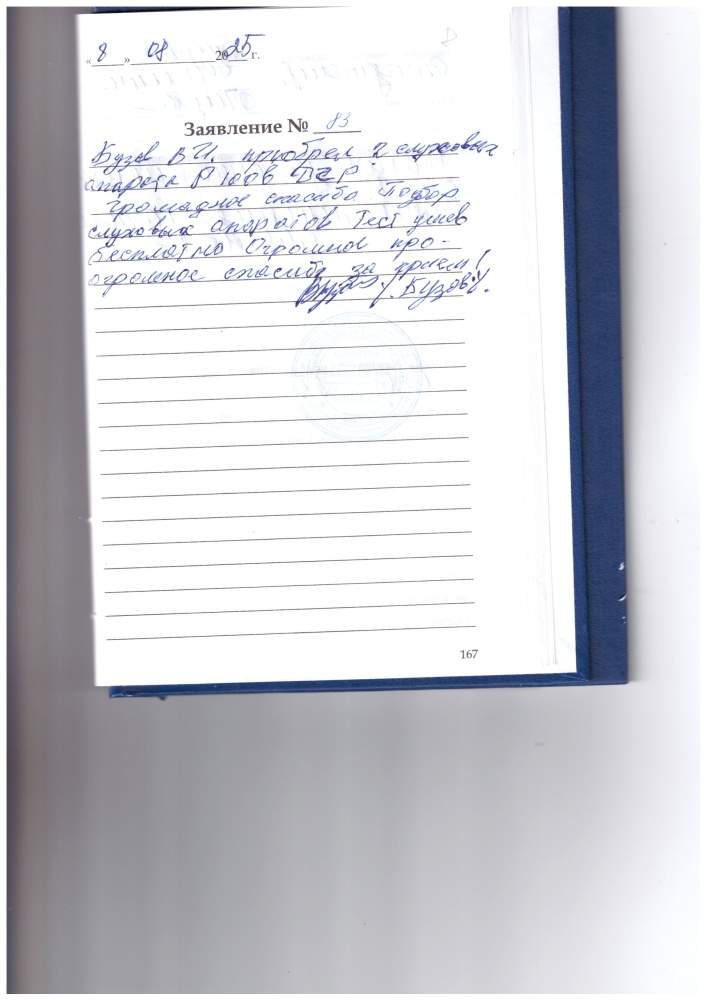 « 8 » 08 2025 г.
Заявление № 83
Бузов В И. приобрел 2 слуховых
апарата
Громадное спасибо Подбор
слуховых апоратов Тест ушев
бесплатно Огромное про-
огромное спасибо за прием!
Бузов
167